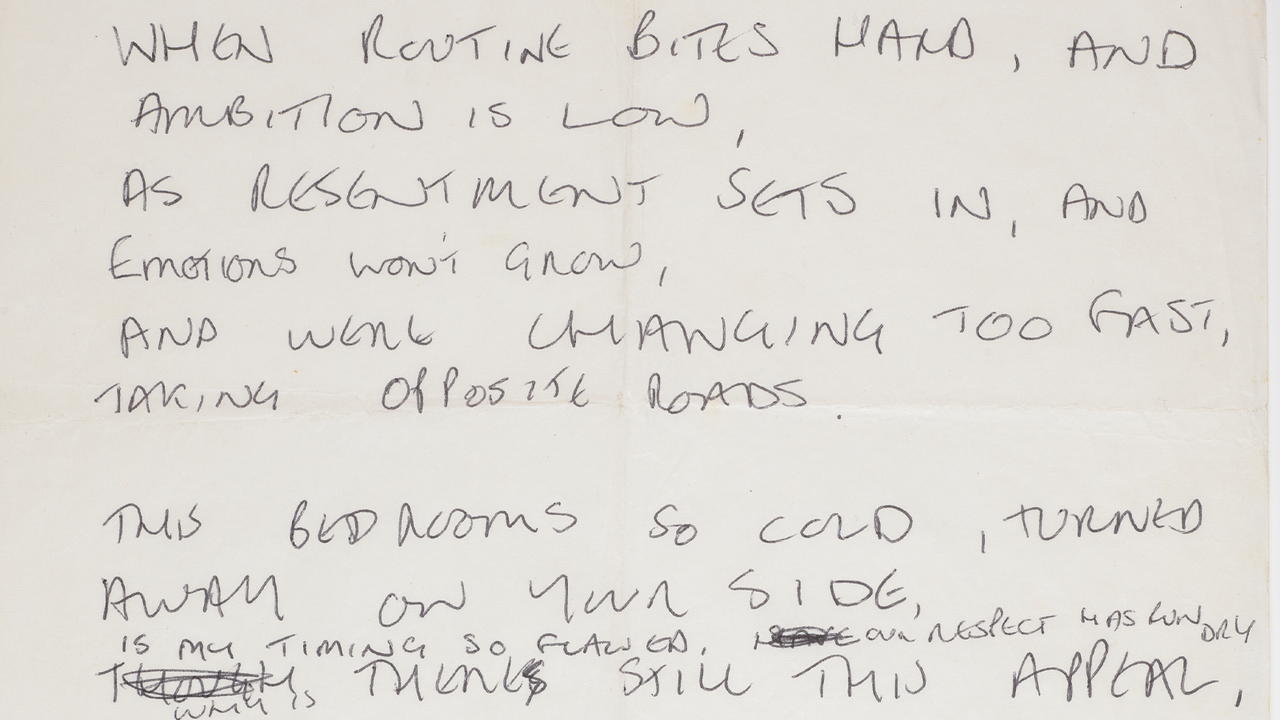 WHEN ROUTINE BITES HARD, AND
AMBITION IS LOW,
AS RESENTMENT SETS IN, AND
EMOTIONS WON'T GROW,
AND WERE CHANGING TOO FAST,
TAKING OPPOSITE ROADS.
THIS BEDROOMS SO COLD, TURNED
AWAY ON YOUR SIDE,
IS MY TIMING SO FLAWED, OUR RESPECT HAS RUN DRY
THERES STILL THIS APPEAL,
WHY IS